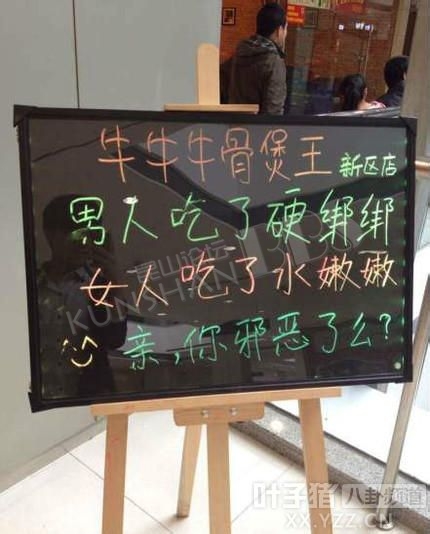 牛牛牛骨煲王 新区店
男人吃了硬绑绑
女人吃了水嫩嫩
亲,你邪恶了么?
昆山论坛
KUNSHAN
叶子猪 八卦频道
XX.YZZ.CN